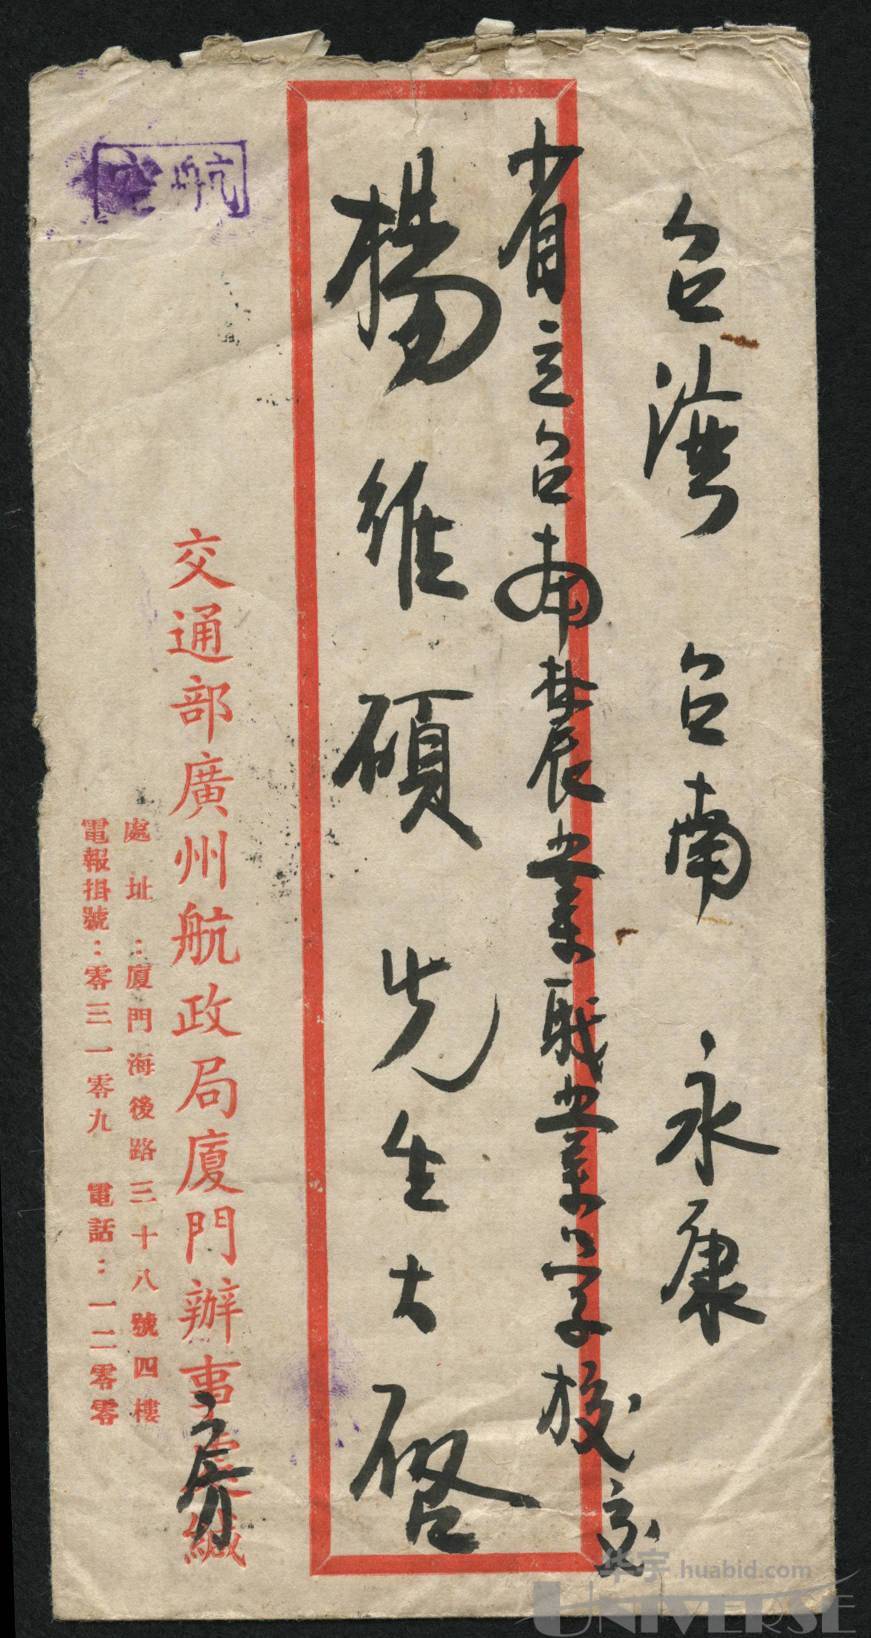 台灣 台南 永康
省立台南農業職業學校交
楊維碩先生大啓
航空
交通部廣州航政局廈門辦事處緘
房
處址：廈門海後路三十八號四樓
電報掛號：零三一零九 電話：一二零零
华宇 huabid.com
UNIVERSE